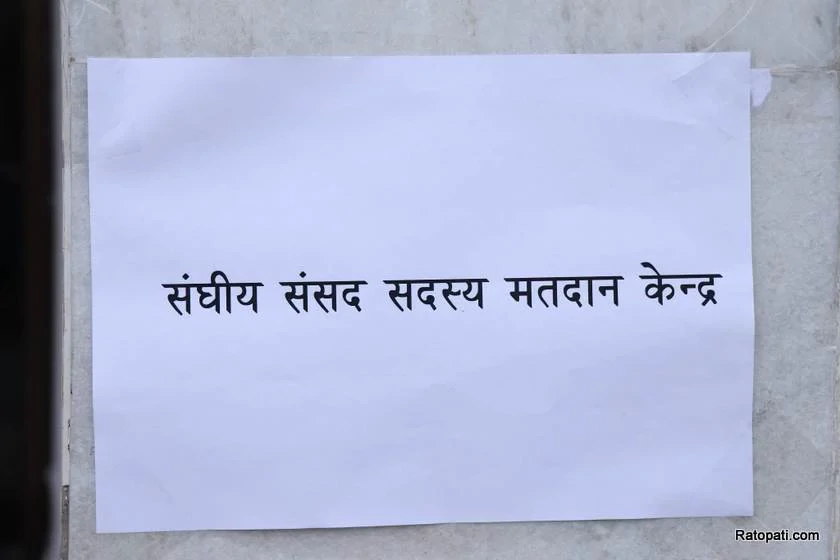 संघीय संसद सदस्य मतदान केन्द्र
Ratopati.com